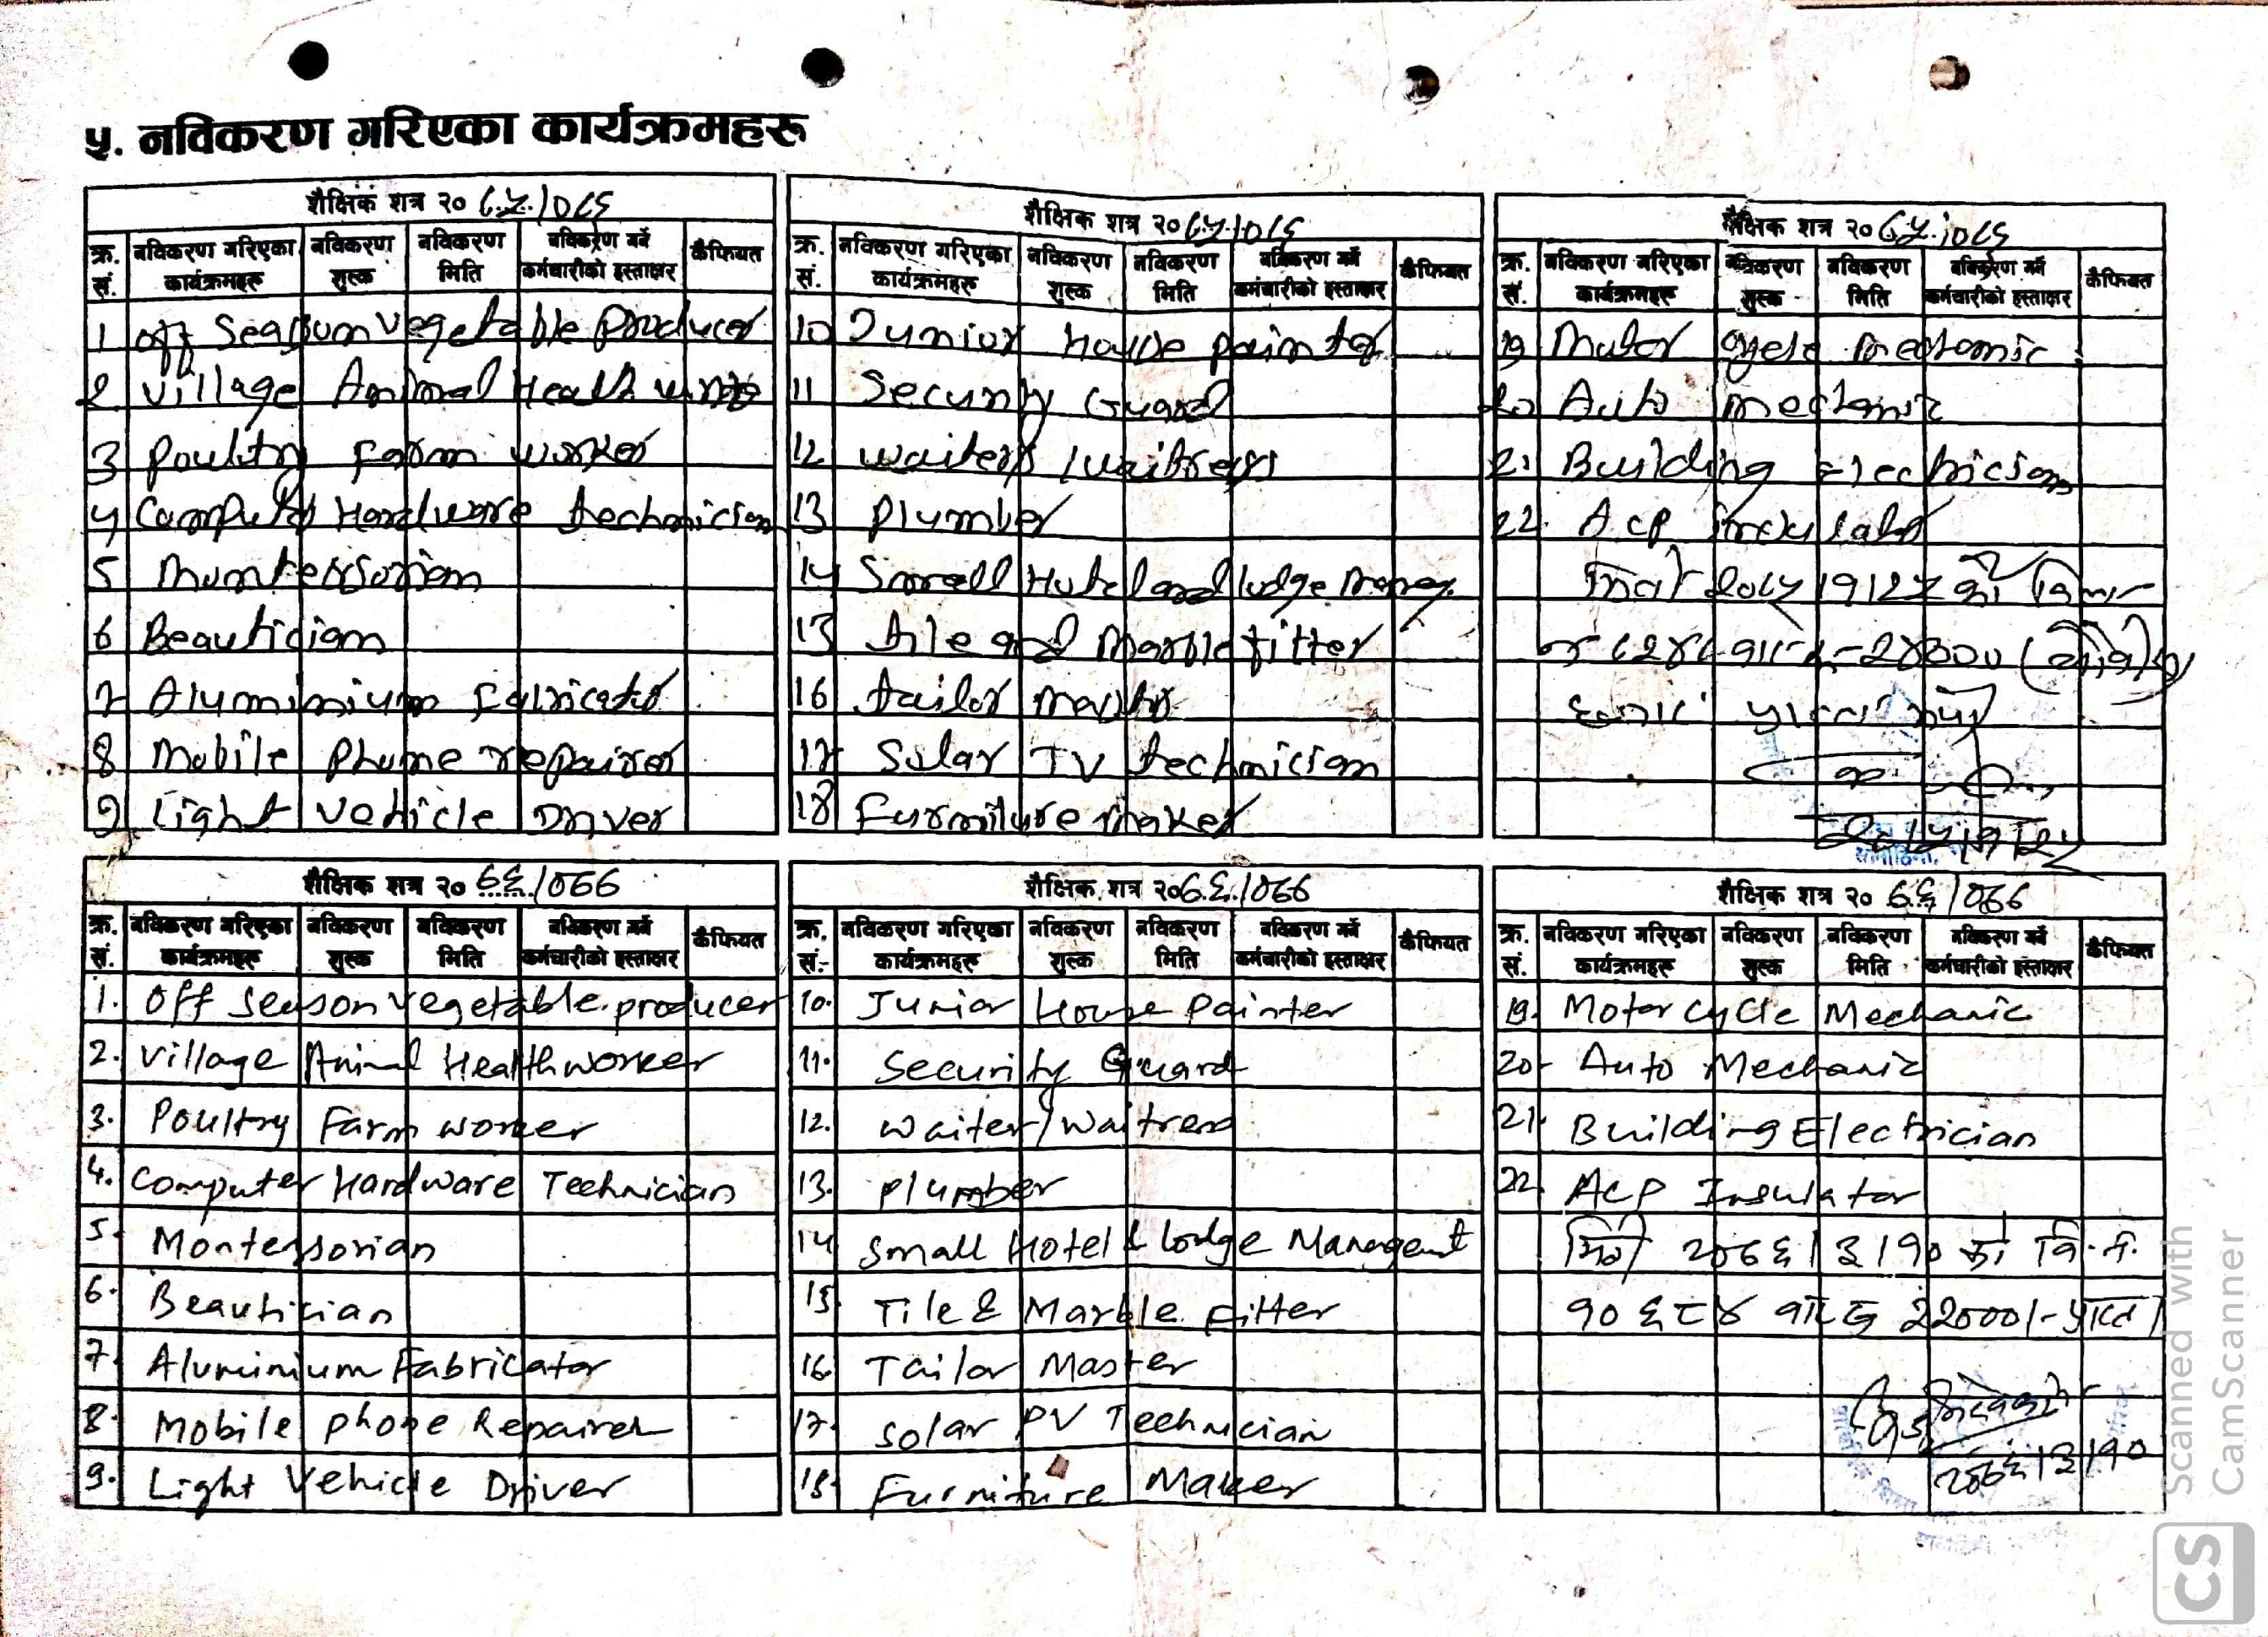 ५. नविकरण गरिएका कार्यक्रमहरु
शैक्षिक शत्र २०७५/०७६
क्र.सं. नविकरण गरिएका कार्यक्रमहरु नविकरण शुल्क नविकरण मिति नविकरण गर्ने कर्मचारीको हस्ताक्षर कैफियत
1 off Seasson vegetable Producer
2 village Animal Health worker
3 Poultry Farm worker
4 Computer Hardware technician
5 Muntessorian
6 Beautician
7 Aluminium Fabricator
8 Mobile Phone repairer
9 Light Vehicle Driver
शैक्षिक शत्र २०७५/०७६
क्र.सं. नविकरण गरिएका कार्यक्रमहरु नविकरण शुल्क नविकरण मिति नविकरण गर्ने कर्मचारीको हस्ताक्षर कैफियत
10 Junior House painter
11 Security Guard
12 waiter/waitress
13 Plumber
14 Small Hotel and lodge
15 tile and Marble fitter
16 tailor master
17 Solar TV technician
18 Furniture Maker
शैक्षिक शत्र २०७५/०७६
क्र.सं. नविकरण गरिएका कार्यक्रमहरु नविकरण शुल्क नविकरण मिति नविकरण गर्ने कर्मचारीको हस्ताक्षर कैफियत
19 Motor cycle mechanic
20 Auto mechanic
21 Building Electrician
22. ACP
शैक्षिक शत्र २०७६/०७७
क्र.सं. नविकरण गरिएका कार्यक्रमहरु नविकरण शुल्क नविकरण मिति नविकरण गर्ने कर्मचारीको हस्ताक्षर कैफियत
1. Off Season vegetable producer
2. Village Animal Health worker
3. Poultry Farm worker
4. Computer Hardware Technician
5. Montessorian
6. Beautician
7. Aluminium Fabricator
8. Mobile phone Repairer
9. Light Vehicle Driver
शैक्षिक शत्र २०७६/०७७
क्र.सं. नविकरण गरिएका कार्यक्रमहरु नविकरण शुल्क नविकरण मिति नविकरण गर्ने कर्मचारीको हस्ताक्षर कैफियत
10. Junior House Painter
11. Security Guard
12. Waiter/Waitress
13. Plumber
14 Small Hotel & Lodge Managent
15. Tile & Marble Fitter
16. Tailor Master
17. Solar PV Technician
18. Furniture Maker
शैक्षिक शत्र २०७६/०७७
क्र.सं. नविकरण गरिएका कार्यक्रमहरु नविकरण शुल्क नविकरण मिति नविकरण गर्ने कर्मचारीको हस्ताक्षर कैफियत
19. Motor cycle Mechanic
20- Auto Mechanic
21. Building Electrician
22. ACP Insulator
मिति २०७६/३/१० को वि.नं.
१०६८४ बाट रु 22000/- प्राप्त।
२०७६/३/१०
Scanned with
CamScanner
CS